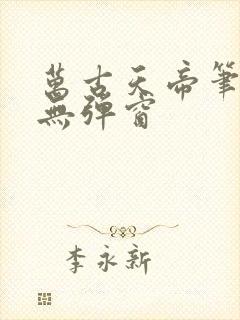 萬古天帝筆
無彈窗
李永新